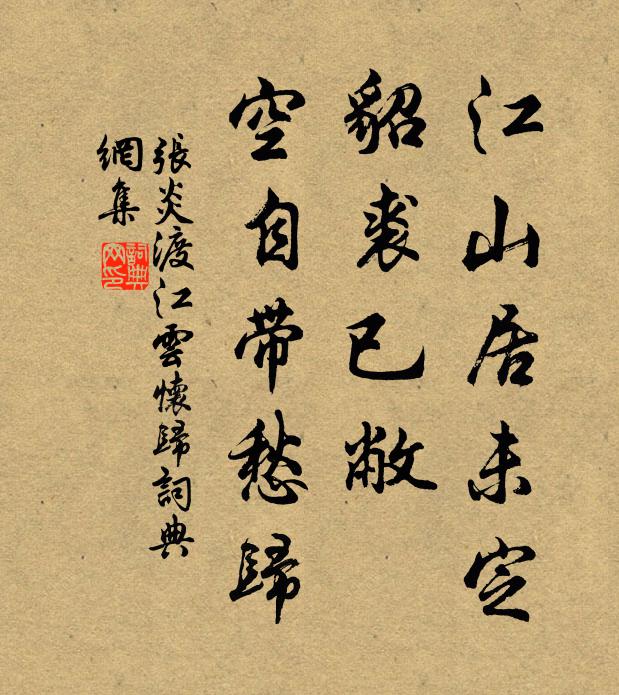 江山居未定
貂裘已敝
空自带愁歸
張炎渡江雲懷歸詞典
網集
詞典
网印